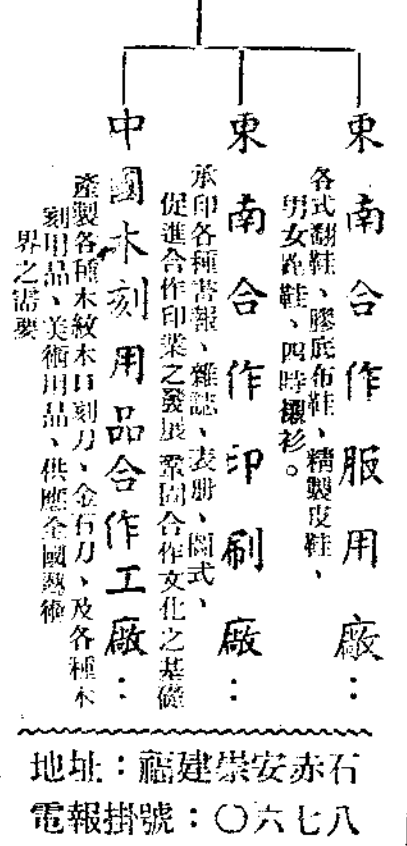 東南合作服用廠：
各式翻鞋、膠底布鞋、精製皮鞋、
男女跑鞋、四時襯衫。
東南合作印刷廠：
承印各種書報、雜誌、表册、圖式、
促進合作印業之發展鞏固合作文化之基礎
中國木刻用品合作工廠：
產製各種木紋木口刻刀、金石刀、及各種木
刻用品、美術用品、供應全國藝術
界之需要
地址：福建崇安赤石
電報掛號：〇六七八